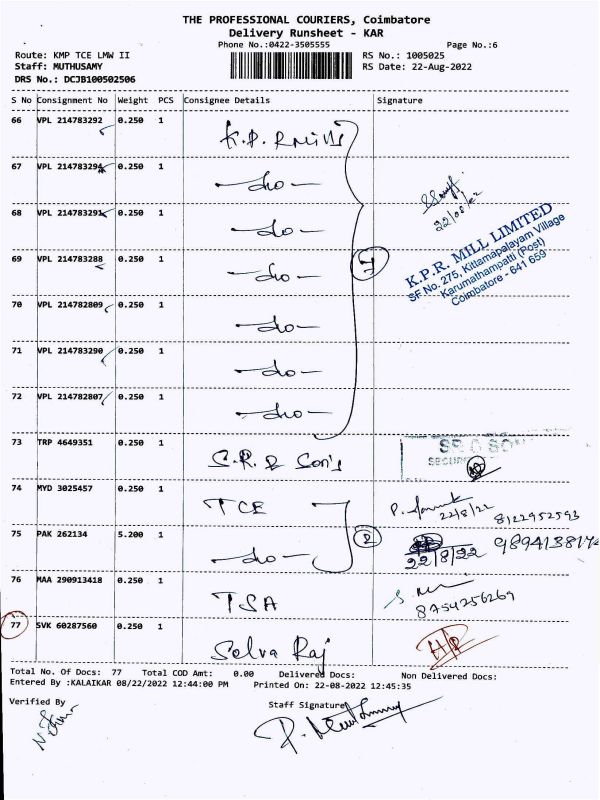 THE PROFESSIONAL COURIERS, Coimbatore
Delivery Runsheet - KAR
Phone No.:0422-3505555 Page No.:6
Route: KMP TCE LMW II RS No.: 1005025
Staff: MUTHUSAMY RS Date: 22-Aug-2022
DRS No.: DCJB100502506
S No Consignment No Weight PCS Consignee Details Signature
66 VPL 214783292 0.250 1 K.P. R Mills
67 VPL 214783294 0.250 1 -do-
22/08/22
68 VPL 214783291 0.250 1 -do-
K.P.R. MILL LIMITED
SF No. 275, Kittampalayam Village
Karumathampatti (Post)
Coimbatore - 641 659
69 VPL 214783288 0.250 1 -do- 7
70 VPL 214782809 0.250 1 -do-
71 VPL 214783290 0.250 1 -do-
72 VPL 214782807 0.250 1 -do-
73 TRP 4649351 0.250 1 S.R. & Son's
74 MYD 3025457 0.250 1 TCE
22/8/22 8122952593
75 PAK 262134 5.200 1 -do- 2
22/8/22
76 MAA 290913418 0.250 1 TSA
8754256269
77 SVK 60287560 0.250 1 Selva Raj
Total No. Of Docs: 77 Total COD Amt: 0.00 Delivered Docs: Non Delivered Docs:
Entered By :KALAIKAR 08/22/2022 12:44:00 PM Printed On: 22-08-2022 12:45:35
Verified By Staff Signature